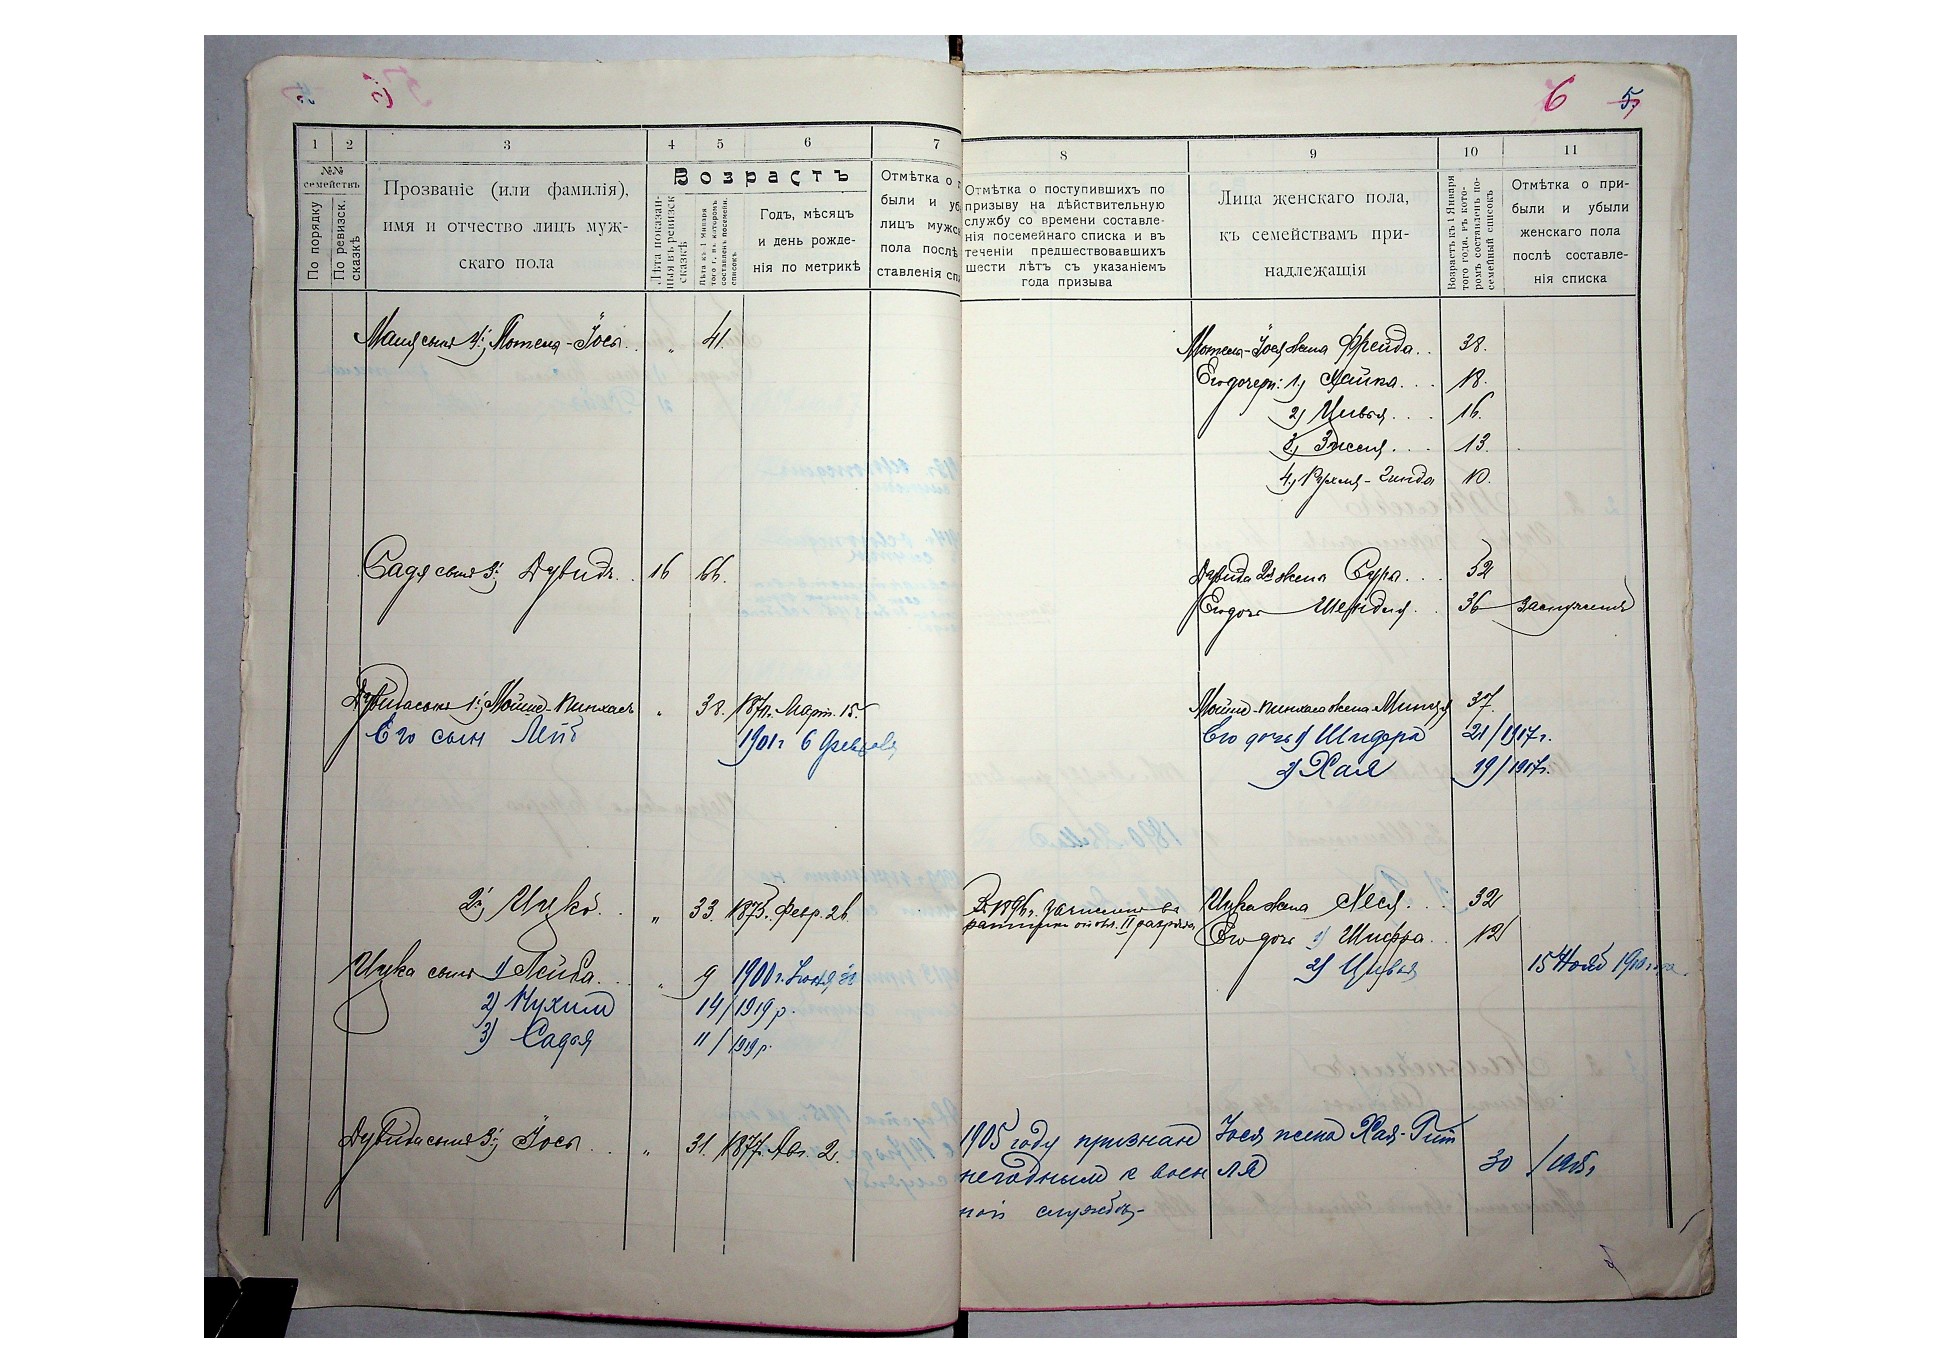 6 5
1 2 3 4 5 6 7
№№ семействъ
По порядку
По ревизск. сказкѣ
Прозваніе (или фамилія),
имя и отчество лицъ муж-
скаго пола
Возрастъ
Лѣта показан-
ныя въ ревизск
сказкѣ
Лѣта къ 1 Января
того г., въ которомъ
составленъ посемейн.
списокъ
Годъ, мѣсяцъ
и день рожде-
нія по метрикѣ
Отмѣтка о
были и уб
лицъ мужс
пола послѣ
ставленія сп
8 9 10 11
Отмѣтка о поступившихъ по
призыву на дѣйствительную
службу со времени составле-
нія посемейнаго списка и въ
теченіи предшествовавшихъ
шести лѣтъ съ указаніемъ
года призыва
Лица женскаго пола,
къ семействамъ при-
надлежащія
Возрастъ къ 1 Января
того года, въ кото-
ромъ составленъ по-
семейный списокъ
Отмѣтка о при-
были и убыли
женскаго пола
послѣ составле-
нія списка
сынъ 3й, Мотель-Іось . . „ 41. Мотеля-Іося жена Фрейда . . 38.
Его дочери: 1, Хайка . . . 18.
2, Цивья . . . 16.
3, Зисля . . . 13.
4, Рухля-Гинда 10.
Садя сынъ 3й, Дувидъ . . 16 66. Дувида 2я жена Сура . . . 52
Его дочь Шейндля . . 36 замужняя
Дувида сынъ 1й, Мойше-Пинхасъ „ 38. 1870 г. Март. 15. Мойше-Пинхаса жена Минця 37.
Его сын Лейб 1901 г 6 Февраля Его дочь 1) Шифра 21/1917 г.
2) Хая 19/1917 г.
2й, Ицко . . „ 33. 1875 г. Февр. 26. В 1896 г. зачислен въ Ицка жена Хеся . . . 32
ратники опол. II разряда, Его дочь 1) Шифра . . 12
Ицка сынъ 1) Лейба . . . „ 9 1900 г. 2) Цивья 15 Нояб 1910 года.
2) Нухим 14/1919 р.
3) Садья 11/1919 р.
Дувида сынъ 3й, Іось . . . „ 31. 1877 г. Авг. 2. 1905 году признан Іося жена Хая-Гит
негодным к воен ля 30 /1908 г
ной службѣ-